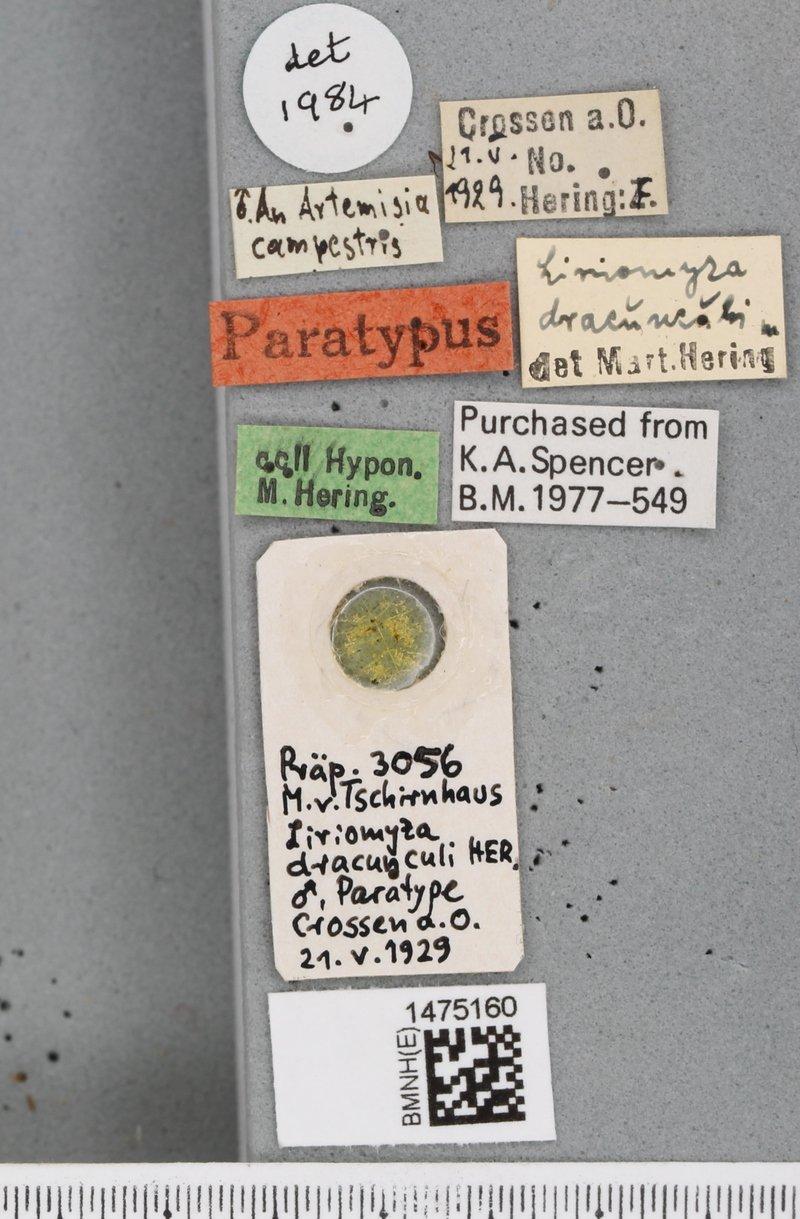 det
1984
Crossen a.O.
21.V. No.
1929. Hering: Z.
♂. An Artemisia
campestris
Liriomyza
dracunculi
det Mart. Hering
Paratypus
coll Hypon.
M. Hering.
Purchased from
K.A. Spencer.
B.M. 1977–549
Präp. 3056
M.v. Tschirnhaus
Liriomyza
dracunculi HER.
♂, Paratype
Crossen a.O.
21.V.1929
1475160
BMNH(E)